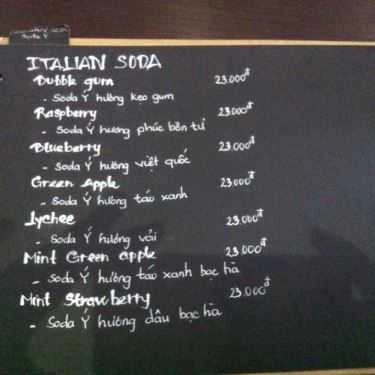 Soda Ý
ITALIAN SODA
Bubble gum 23.000đ
- Soda Ý hương keo gum
Raspberry 23.000đ
- Soda Ý hương phúc bồn tử
Blueberry 23.000đ
- Soda Ý hương việt quốc
Green Apple 23.000đ
- Soda Ý hương táo xanh
Lychee 23.000đ
- Soda Ý hương vải
Mint Green apple 23.000đ
- Soda Ý hương táo xanh bạc hà
Mint Strawberry 23.000đ
- Soda Ý hương dâu bạc hà